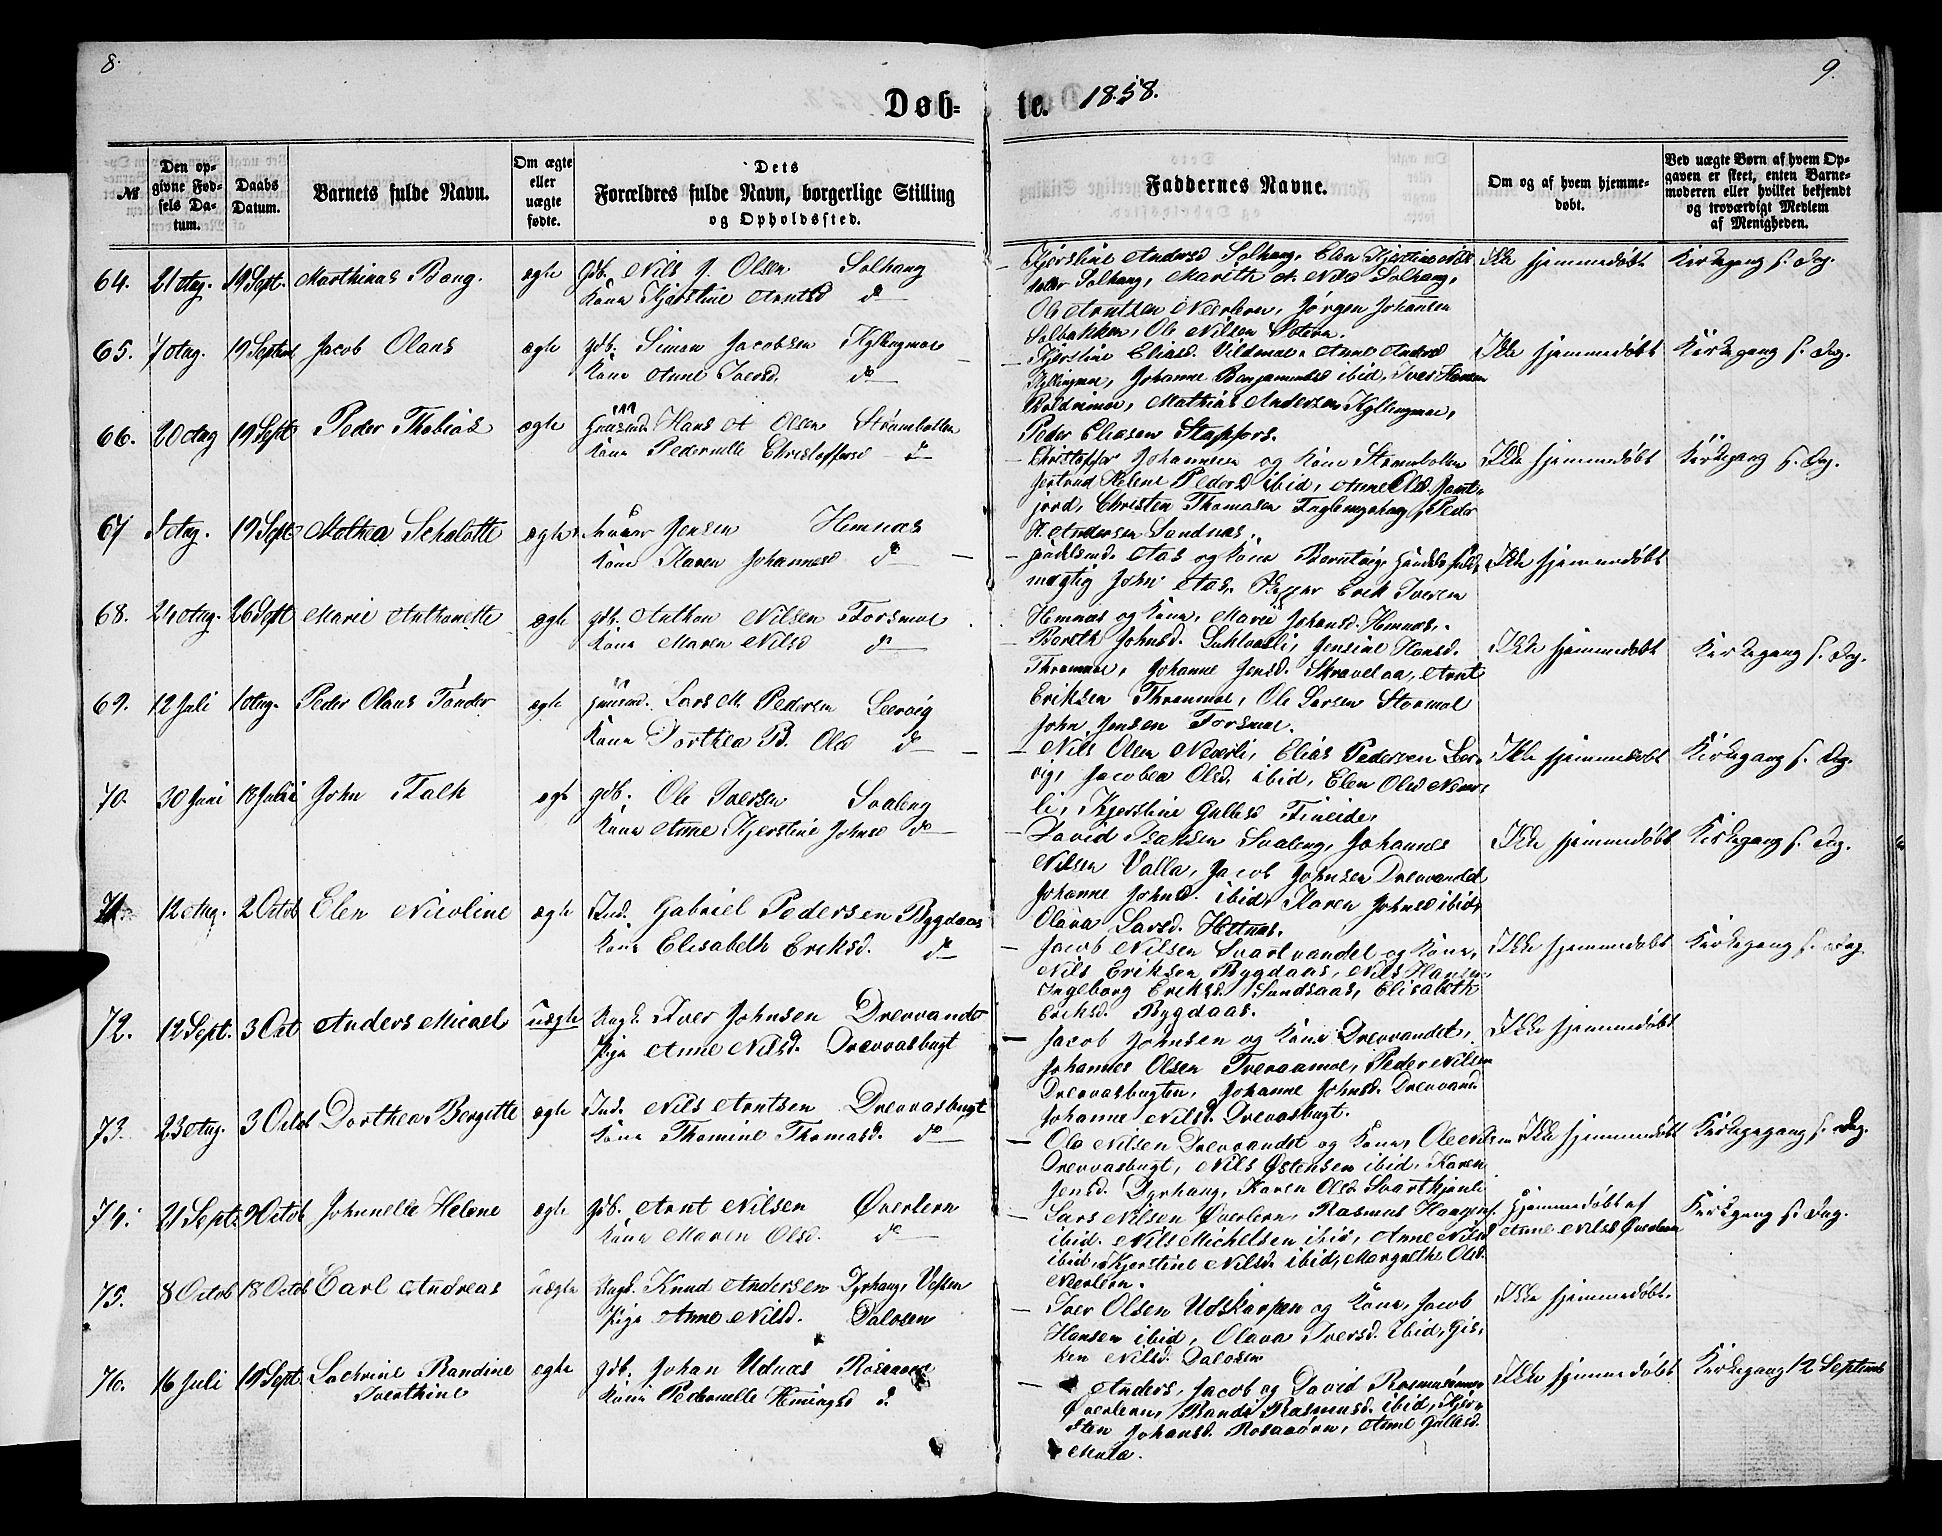 8.
9.
Døb-
te. 1858.
№
Den op-
givne Fød-
sels Da-
tum.
Daabs
Datum.
Barnets fulde Navn.
Om ægte
eller
uægte
fødte.
Dets
Forældres fulde Navn, borgerlige Stilling
og Opholdssted.
Faddernes Navne.
Om og af hvem hjemme-
døbt.
Ved uægte Børn af hvem Op-
gaven er skeet, enten Barne-
moderen eller hvilket bekjendt
og troværdigt Medlem
af Menigheden.
64. 21 Aug. 19 Sept. Marthinus Bang. ægte gdb. Nils J. Olsen Solhaug
Kone Kjerstine Arntsd do
Kjerstine Andersd Solhaug, Elen Kjerstine Nils
datter Solhaug, Mareth A. Nilsd Solhaug,
Ole Arntsen Nærlern, Jørgen Johansen
Solbakken, Ole Nilsen
Ikke hjemmedøbt
Kirkegang s. Dag.
65. 7 Aug. 19 Septem Jacob Olaus ægte gdb. Simon Jacobsen Kyllingmoe
Kone Anne Iversd. do
Kjerstine Eliasd. Vildmoe, Anne Andersd
Kyllingmoe, Johanne Benjaminsd ibid, Iver Hansen
Baldvimoe, Mathias Andersen Kyllingmoe,
Peder Eliasen Stapfors.
Ikke hjemmedøbt
Kirkegang s. Dag.
66. 20 Aug 19 Sept Peder Thobias ægte Huusmd. Hans A Olsen Strømbotten
Kone Pedernelle Christoffersd do
Christoffer Johannesen og Kone Strømbotten
Gertrud Helene Pedersd ibid, Anne Olsd. Jamt-
jord, Christen Thomasen Fuglengshaug, Peder
H. Andersen Sandnæs.
Ikke hjemmedøbt
Kirkegang s. Dag.
67 5 Aug. 19 Sept Mathea Scholotte ægte Jensen Hemnæs
Kone Karen Johannesd do
Handelsmd. Aas og Kone Handelsfuld-
mægtig John Aas, Skipper Erik Iversen
Hemnæs og Kone, Marie Johansd. Hemnæs.
Ikke hjemmedøbt
68. 24 Aug. 26 Sept Marie Anthonette ægte gdb. Anthon Nilsen Forsmoe
Kone Maren Nilsd do
Bereth Johnsd. Luktvasli, Jensine Hansd.
Thranmoe, Johanne Jensd. Skravelaa, Arnt
Eriksen Thranmoe, Ole Larsen Stormoe
John Jensen Forsmoe.
Ikke hjemmedøbt
Kirkegang s. Dag.
69. 12 Juli 1 Aug. Peder Olaus Tønder ægte Huusmd. Lars M. Pedersen Leervig
Kone Dorthea B. Olsd do
Nils Olsen Neverli, Elias Pedersen Leer-
vig, Jacobea Olsd. ibid, Elen Olsd Never-
li, Kjerstine Gullesd Fineide,
Ikke hjemmedøbt
Kirkegang s. Dag.
70. 30 Juni 18 Julii John Falk ægte gdb. Ole Iversen Svaleng
Kone Anne Kjerstine Johnsd do
David Isaksen Svaleng, Johannes
Nilsen Valla, Jacob Johnsen Drevvandet
Johanne Johnsd. ibid, Karen Johnsd ibid,
Olava Larsd. Hemnæs.
Ikke hjemmedøbt
Kirkegang s. Dag.
71. 12 Aug. 2 Octob Elen Nicoline ægte Ind. Gabriel Pedersen Bygdaas
Kone Elisabeth Eriksd. do
Jacob Nilsen Svartvandet og Kone,
Nils Eriksen Bygdaas, Nils Hansen,
Ingeborg Eriksd. Sundsaas, Elisabeth
Eriksd. Bygdaas.
Ikke hjemmedøbt
Kirkegang s. Dag.
72. 12 Sept. 3 Oct Anders Micael uægte Ungk. Iver Johnsen Drevvandet
Pige Anne Nilsd. Drevvasbugt
Jacob Johnsen og Kone Drevvandet,
Johannes Olsen Tveraamoe, Peder Nilsen
Drevvasbugten, Johanne Johnsd. Drevvand
Johanne Nilsd. Drevvasbugt.
Ikke hjemmedøbt
73. 23 Aug. 3 Octob Dorthea Bergitte ægte Ind. Nils Arntsen Drevvasbugt
Kone Thomine Thomasd. do
Ole Nilsen Drevvandet og Kone, Ole
Drevvasbugt, Nils Østensen ibid, Karen
Jensd. Dyrhaug, Karen Olsd. Svartkjønli
Ikke hjemmedøbt
Kirkegegang s. Dag.
74. 21 Sept. Octob Johnnelle Helene ægte gdb. Arnt Nilsen Øverlern
Kone Maren Olsd. do
Lars Nilsen Øverlern, Rasmus Hansen
ibid. Nils Michelsen ibid, Anne Nilsd
ibid, Kjerstine Nilsd. ibid, Margrethe Olsd.
Nærlern.
Hjemmedøbt af
Anne Nilsd Øverlern
Kirkegang s. Dag.
75. 8 Octob 18 Octob Carl Andreas uægte Ungk. Knud Andersen Dyrhaug, Vefsen
Pige Anne Nilsd. Dalosen
Iver Olsen Udskarpen og Kone, Jacob
Hansen ibid, Olava Iversd. ibid, Gis-
ken Nilsd. Dalosen
Ikke hjemmedøbt.
76. 16 Juli 19 Sept. Randine
ægte gdb. Johan Udnæs
Kone Pedernelle Hemingsd do
Anders, Jacob og David Rasmussen
Øverlern, Rande Rasmusd. ibid, Kjer-
sten Johansd. Rosaaøren, Anne Gullesd.
Mula.
Ikke hjemmedøbt
Kirkegang 12 Septemb